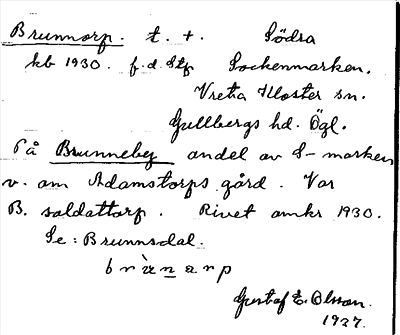 Brunnorp. t. +. Södra
kb 1930. f.d. Stp Sockenmarken.
Vreta Kloster sn.
Gullbergs hd. Ögl.
På Brunneby andel av S-marken
v. om Adamstorps gård. Var
B. soldattorp. Rivet omkr 1930.
Se: Brunnsdal.
Gustaf E. Olsson.
1927.